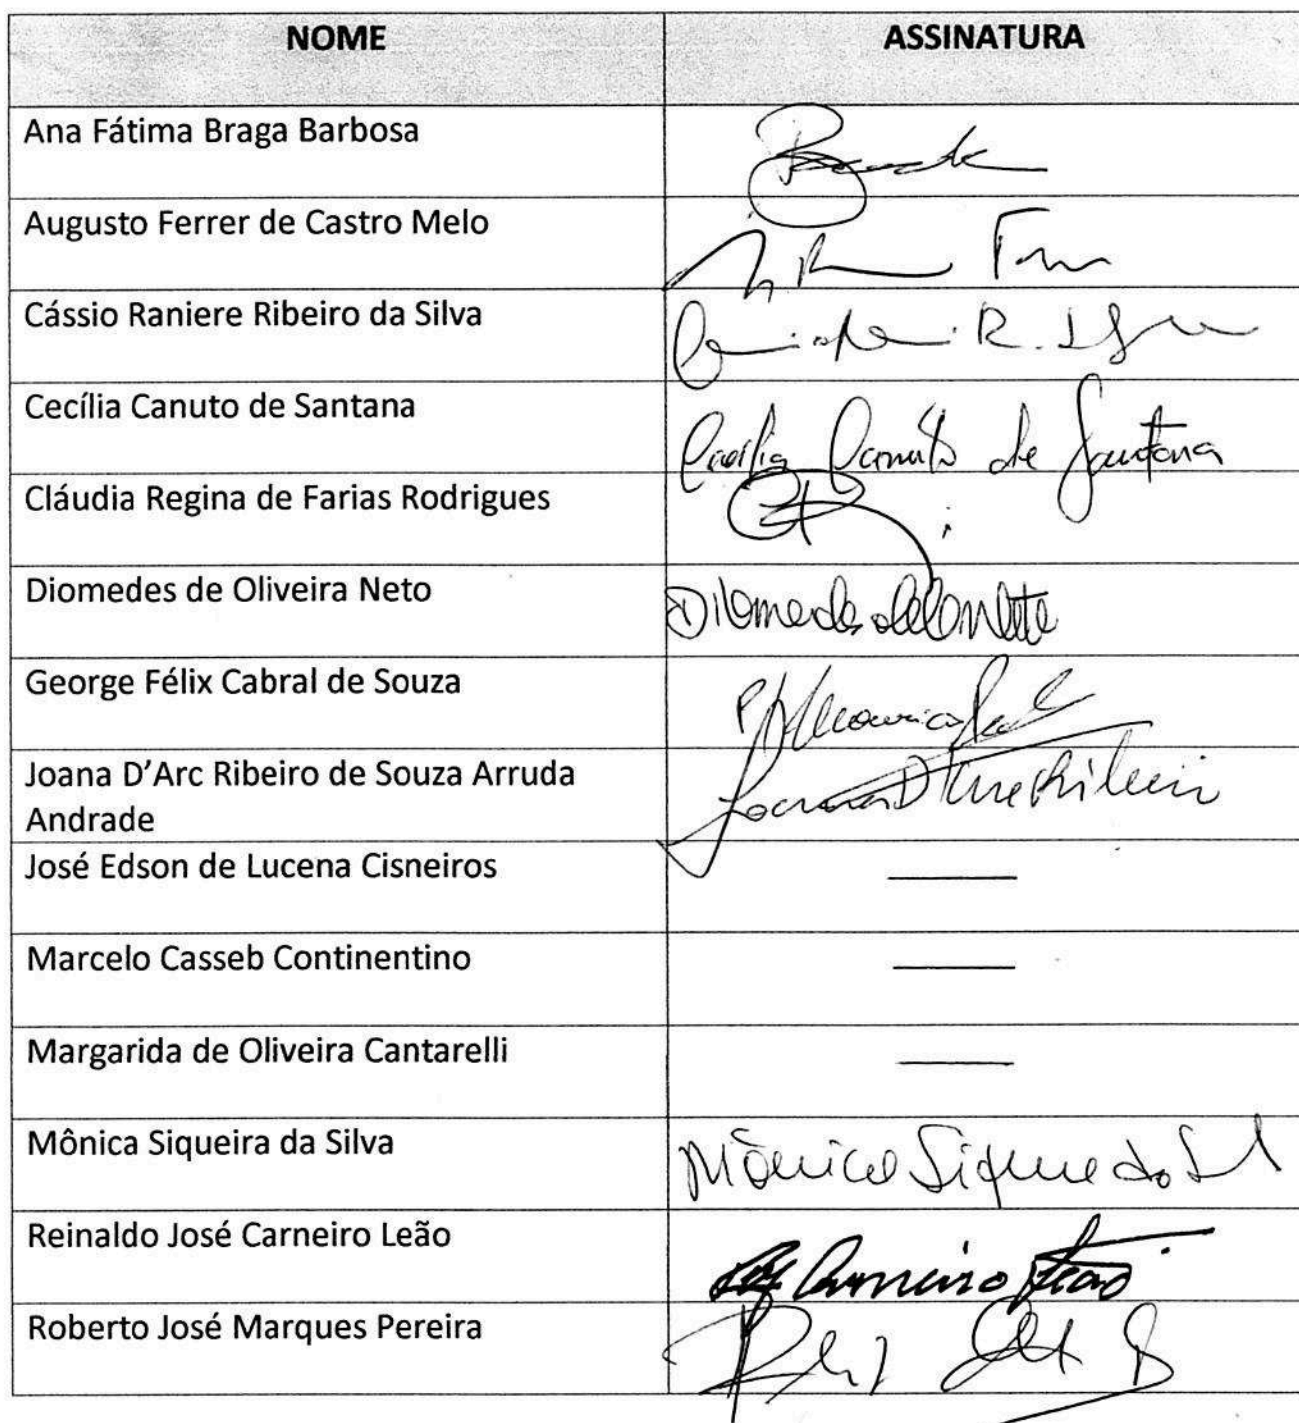 NOME ASSINATURA
Ana Fátima Braga Barbosa
Augusto Ferrer de Castro Melo
Cássio Raniere Ribeiro da Silva R.
Cecília Canuto de Santana Cecília Canuto de Santana
Cláudia Regina de Farias Rodrigues
Diomedes de Oliveira Neto Diomedes de O Neto
George Félix Cabral de Souza
Joana D'Arc Ribeiro de Souza Arruda
Andrade
Joana D'Arc Ribeiro
José Edson de Lucena Cisneiros
Marcelo Casseb Continentino
Margarida de Oliveira Cantarelli
Mônica Siqueira da Silva Mônica Siqueira da Silva
Reinaldo José Carneiro Leão Carneiro Leão
Roberto José Marques Pereira